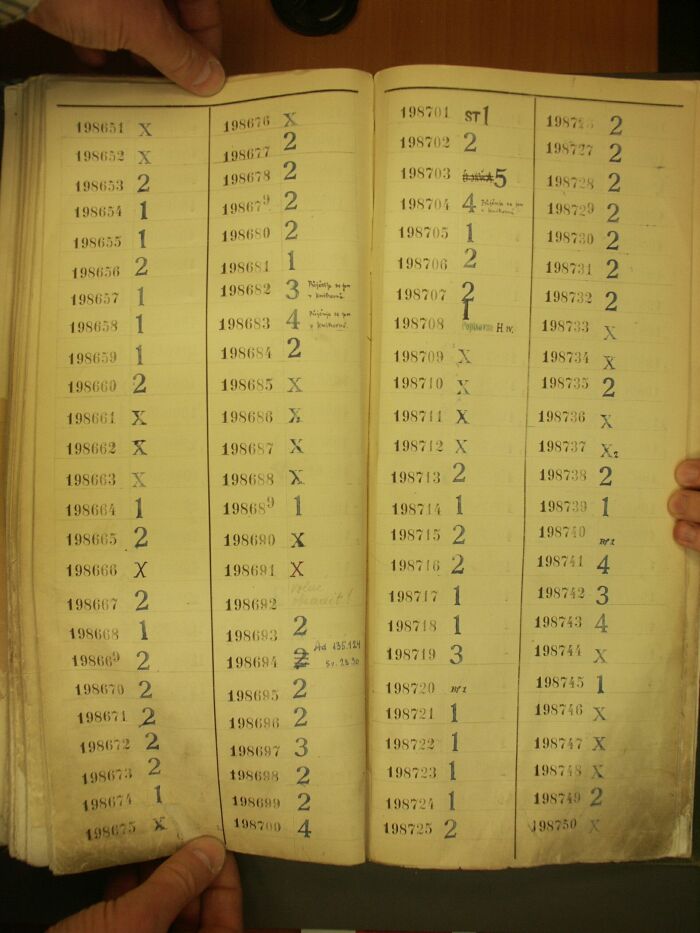 198651 X
198652 X
198653 2
198654 1
198655 1
198656 2
198657 1
198658 1
198659 1
198660 2
198661 X
198662 X
198663 X
198664 1
198665 2
198666 X
198667 2
198668 1
198669 2
198670 2
198671 2
198672 2
198673 2
198674 1
198675 X
198676 X
198677 2
198678 2
198679 2
198680 2
198681 1
198682 3 Půjčuje se jen
v knihovně.
198683 4 Půjčuje se jen
v knihovně.
198684 2
198685 X
198686 X
198687 X
198688 X
198689 1
198690 X
198691 X
198692
198693 2
198694 2 Ad 135.124
Sv. 29.30
198695 2
198696 2
198697 3
198698 2
198699 2
198700 4
198701 ST 1
198702 2
198703 5
198704 4 Půjčuje se jen
v knihovně.
198705 1
198706 2
198707 2
198708 1
H IV.
198709 X
198710 X
198711 X
198712 X
198713 2
198714 1
198715 2
198716 2
198717 1
198718 1
198719 3
198720 Rf 2
198721 1
198722 1
198723 1
198724 1
198725 2
198726 2
198727 2
198728 2
198729 2
198730 2
198731 2
198732 2
198733 X
198734 X
198735 2
198736 X
198737 X2
198738 2
198739 1
198740 Rf 2
198741 4
198742 3
198743 4
198744 X
198745 1
198746 X
198747 X
198748 X
198749 2
198750 X